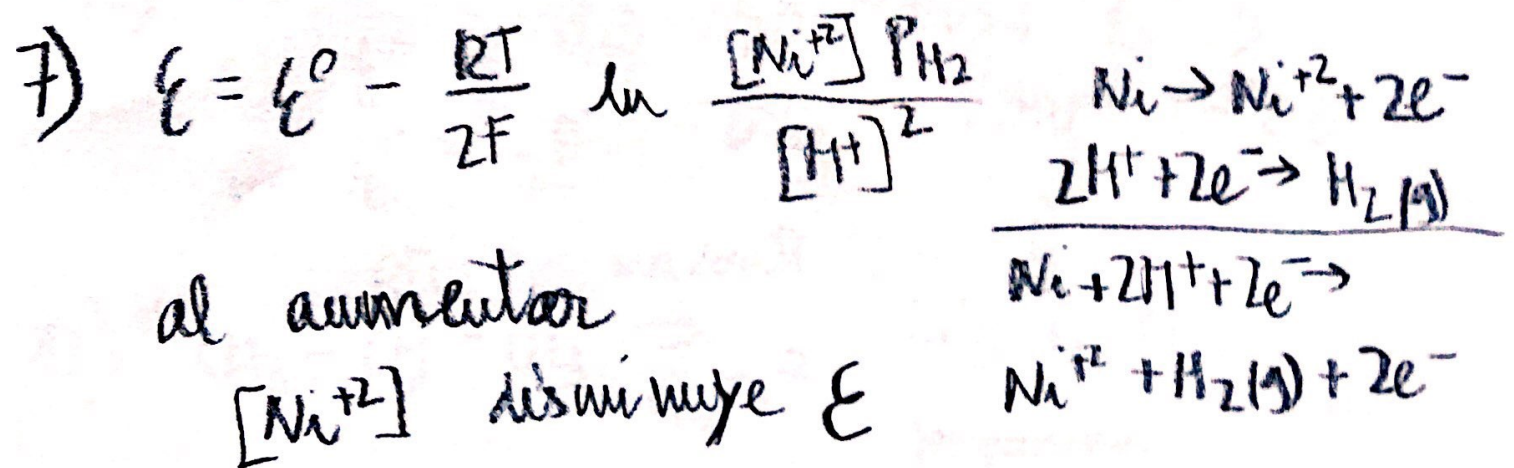 7) ε = ε° - RT/2F ln [Ni⁺²] P_H₂ / [H⁺]²
al aumentar
[Ni⁺²] disminuye ε
Ni → Ni⁺² + 2e⁻
2H⁺ + 2e⁻ → H₂(g)
Ni + 2H⁺ + 2e⁻ →
Ni⁺² + H₂(g) + 2e⁻